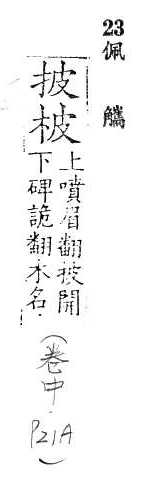 23
佩觿
披柀
上噴眉翻披開
下碑詭翻木名
(卷中P21A)